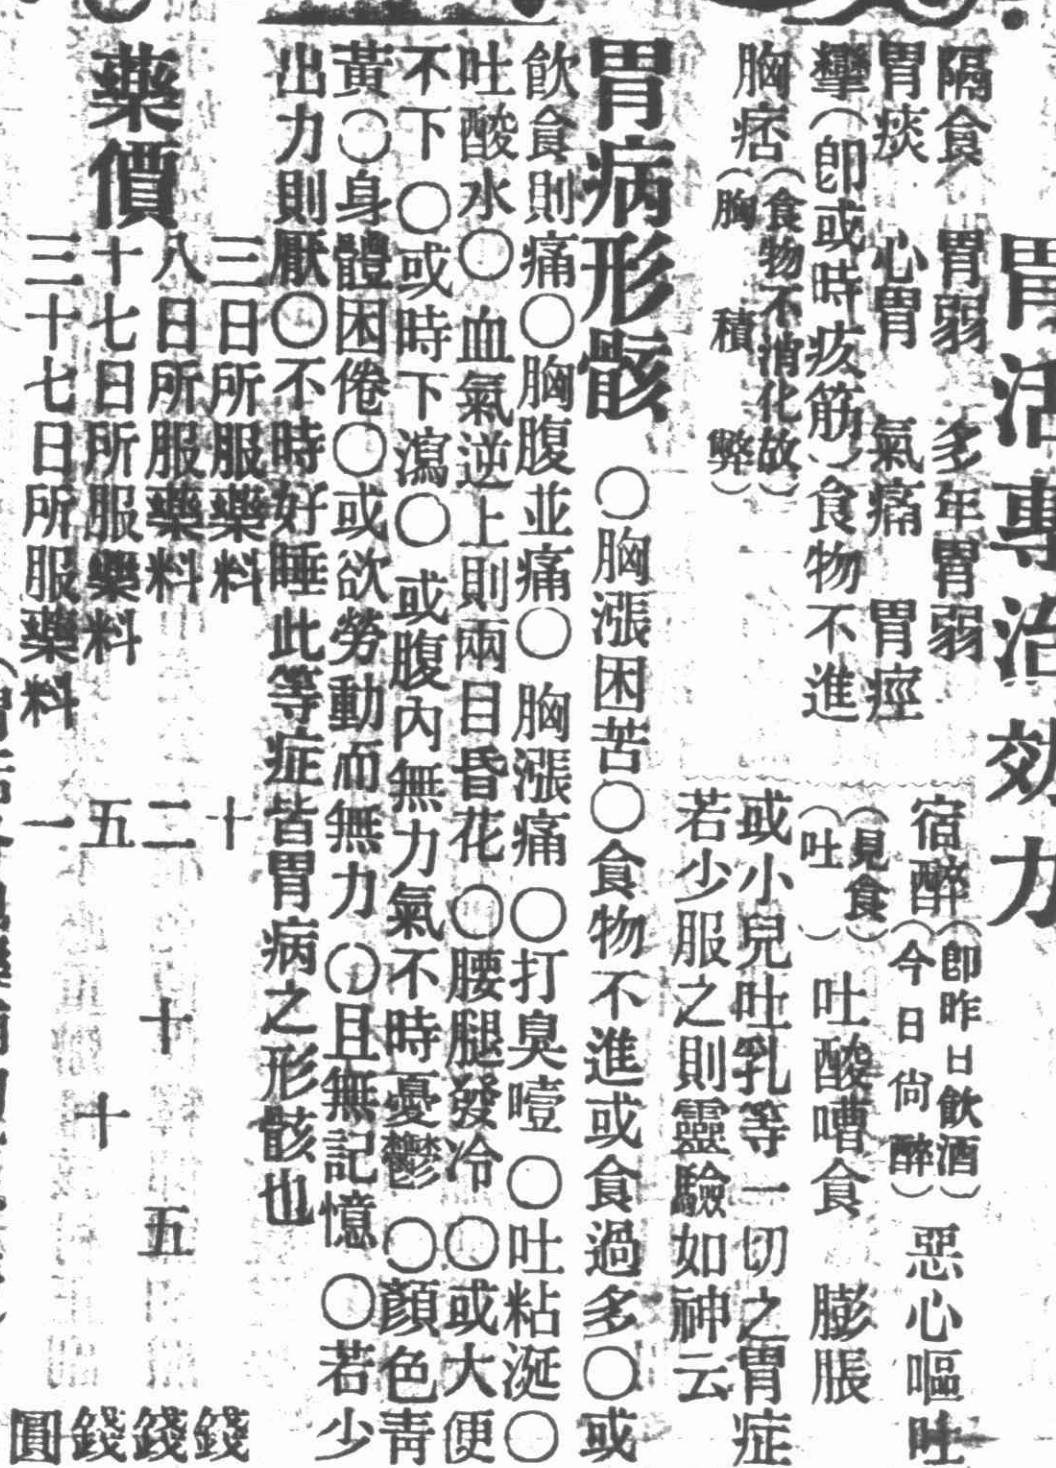 胃活專治効力
隔食　胃弱　多年胃弱
胃痰　心胃　氣痛　胃痙
攣（卽或時疚筋）食物不進
胸痞（食物不消化故）
（胸積弊）
宿醉（卽昨日飲酒）
（今日尙醉）惡心嘔吐
（見食）
（吐）吐酸嘈食　膨脹
或小兒吐乳等一切之胃症
若少服之則靈驗如神云
胃病形骸　〇胸漲困苦〇食物不進或食過多〇或
飮食則痛〇胸腹並痛〇胸漲痛〇打臭噎〇吐粘涎〇
吐酸水〇血氣逆上則兩目昏花〇腰腿發冷〇或大便
不下〇或時下瀉〇或腹內無力氣不時憂鬱〇顏色靑
黃〇身體困倦〇或欲勞動而無力〇且無記憶〇若少
出力則厭〇不時好睡此等症皆胃病之形骸也
藥價
三日所服藥料　十　錢
八日所服藥料　二十五　錢
十七日所服藥料　五十　錢
三十七日所服藥料　一　圓